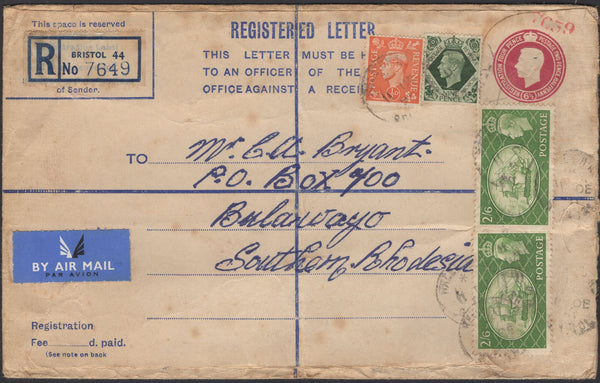 This space is reserved
REGISTERED LETTER
BRISTOL 44
R No 7649
of Sender.
THIS LETTER MUST BE
TO AN OFFICER OF THE
OFFICE AGAINST A
POSTAGE REVENUE
PENCE
TO
Mr.
Bryant.
P.O. Box 700
Bulawayo
Southern Rhodesia
POSTAGE
2/6
POSTAGE
2/6
BY AIR MAIL
PAR AVION
Registration
Fee d. paid.
(See note on back